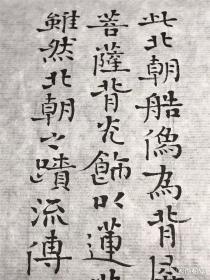 此北朝艁像為背屏
菩薩背光飾以蓮
雖然北朝之蹟流傳